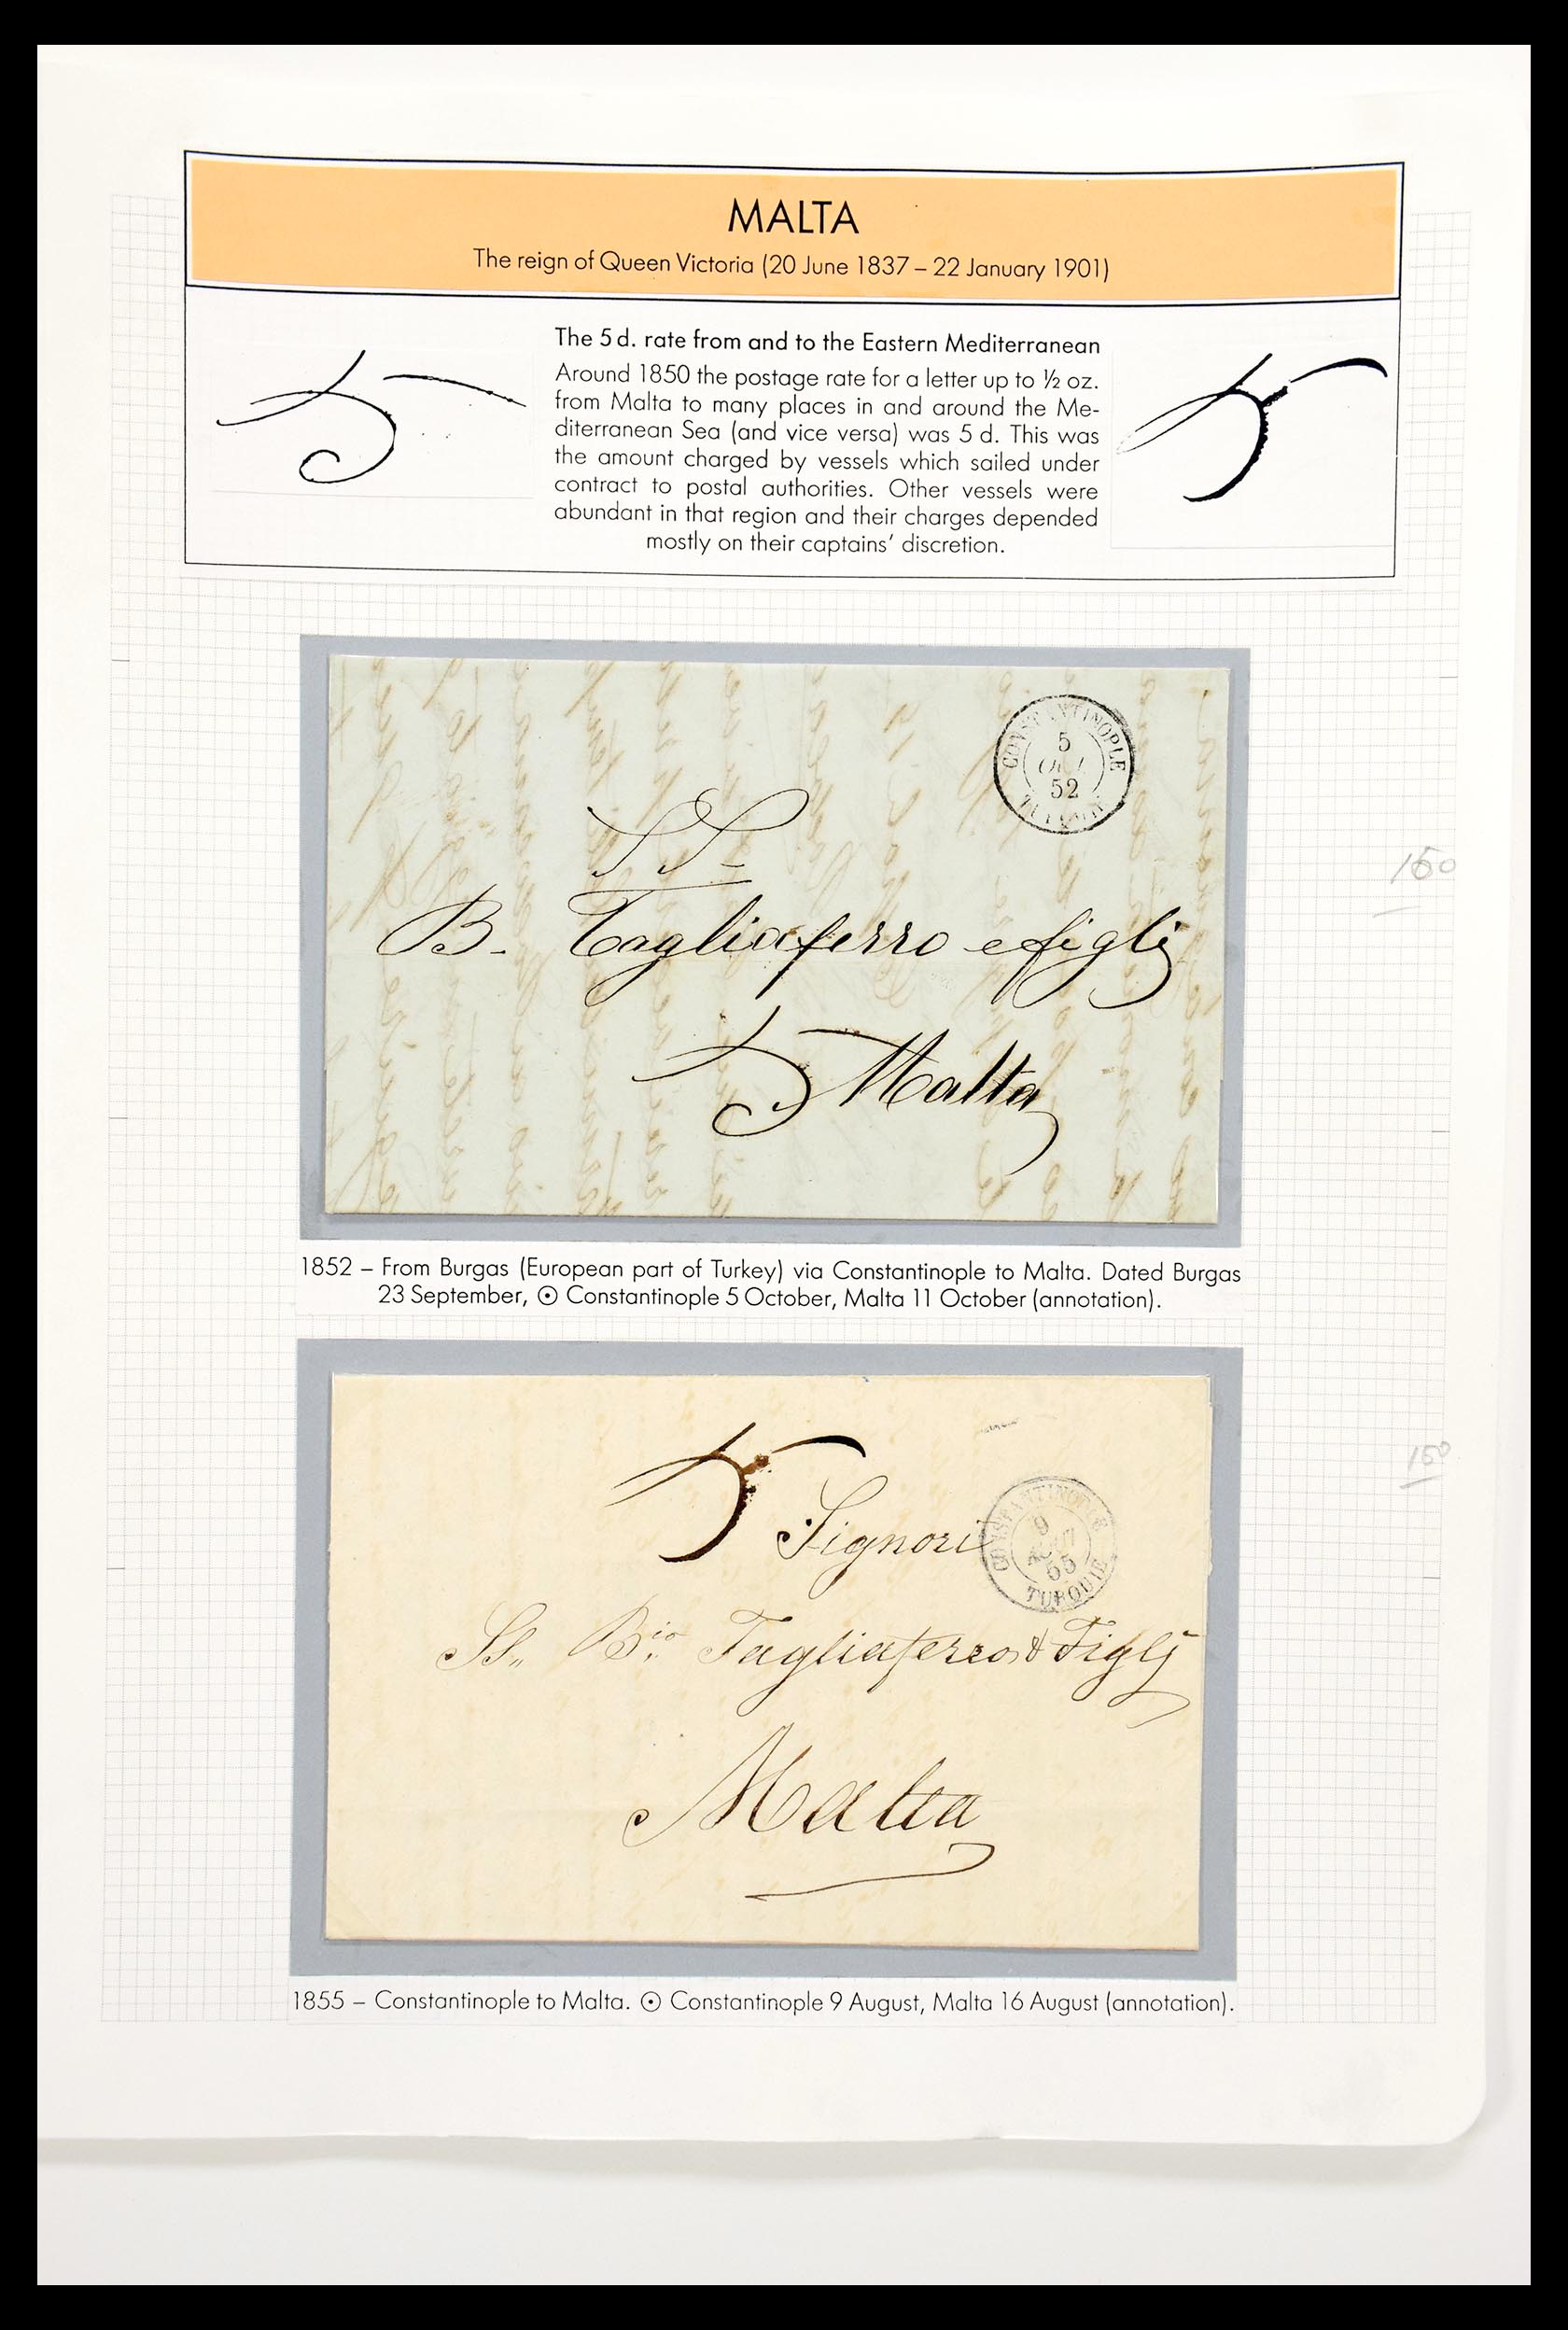 MALTA
The reign of Queen Victoria (20 June 1837 – 22 January 1901)
5
The 5 d. rate from and to the Eastern Mediterranean
Around 1850 the postage rate for a letter up to ½ oz.
from Malta to many places in and around the Me-
diterranean Sea (and vice versa) was 5 d. This was
the amount charged by vessels which sailed under
contract to postal authorities. Other vessels were
abundant in that region and their charges depended
mostly on their captains’ discretion.
5
CONSTANTINOPLE
5
OCT
52
SS
B. Tagliaferro e figlj
5 Malta
150
1852 – From Burgas (European part of Turkey) via Constantinople to Malta. Dated Burgas
23 September, ⊙ Constantinople 5 October, Malta 11 October (annotation).
5
Signori
CONSTANTINOPLE
9
AOUT
55
TURQUIE
SS. B.io Tagliaferro & Figlj
Malta
150
1855 – Constantinople to Malta. ⊙ Constantinople 9 August, Malta 16 August (annotation).